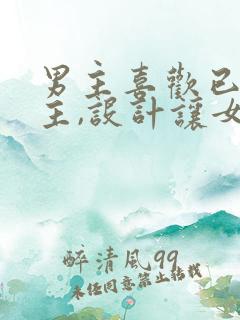 男主喜歡已
主,設計讓女
醉清風99
未經同意禁止轉載